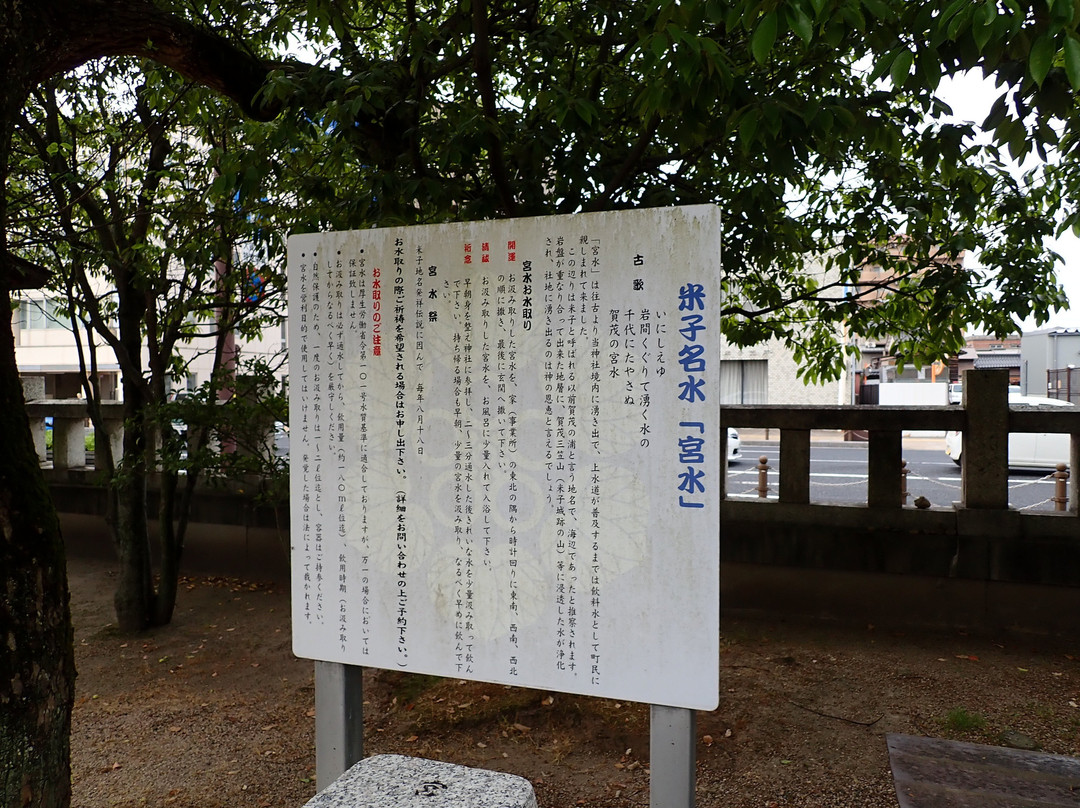 米子名水「宮水」
古歌
いにしえゆ
岩間くぐりて湧く水の
千代にたやさぬ
賀茂の宮水
「宮水」は往古より当神社境内に湧き出で、上水道が普及するまでは飲料水として町民に
親しまれて来ました。
この辺りは米子と呼ばれる以前賀茂の浦と言う地名で、海辺であったと推察されます。
岩盤が重なり合って出来た地層に賀茂三笠山（米子城跡の山）等に浸透した水が浄化
され、社地に湧き出るのは神の恩恵と言えるでしょう。
宮水お水取り
開運 お汲み取りした宮水を、家（事業所）の東北の隅から時計回りに東南、西南、西北
の順に撒き、最後に玄関へ撒いて下さい。
清祓 お汲み取りした宮水を、お風呂に少量入れて入浴して下さい。
祈念 早朝身を整え神社に参拝し、二～三分通水した後きれいな水を少量汲み取って飲ん
で下さい。持ち帰る場合も早朝、少量の宮水を汲み取り、なるべく早めに飲んで下
さい。
宮水祭
米子地名発祥伝説に因んで 毎年八月十八日
お水取りの際ご祈祷を希望される場合はお申し出下さい。（詳細をお問い合わせの上ご予約下さい。）
お水取りのご注意
●宮水は厚生労働省令第一〇一号水質基準に適合しておりますが、万一の場合においては
保証致しません。
●お汲み取りは必ず通水してから、飲用量（約一八〇ml位迄）、飲用時期（お汲み取り
してからなるべく早く）を厳守しください。
●自然保護のため、一度のお汲み取りは一～二ℓ位迄とし、容器はご持参ください。
●宮水を営利目的で使用してはいけません。発覚した場合は法によって裁かれます。